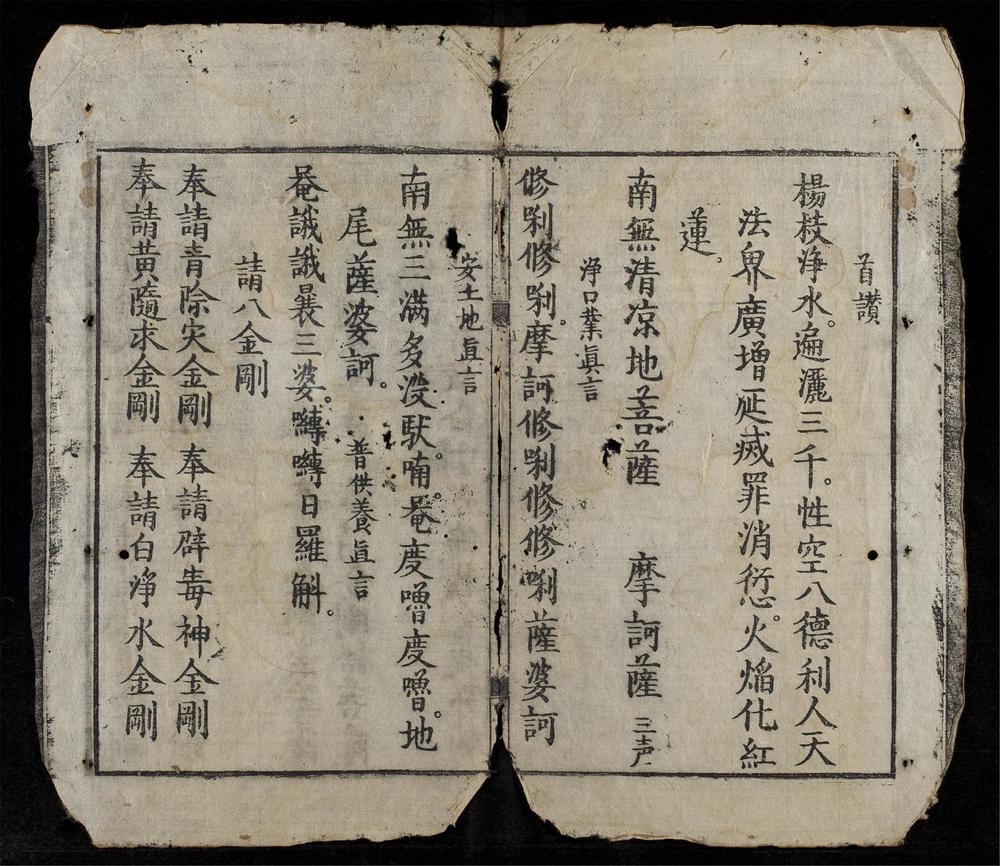 首讃
楊枝淨水。遍灑三千。性空八德利人天
法界廣增延滅罪消愆。火焰化紅
蓮。
南無清凉地菩薩 摩訶薩 三声
淨口業眞言
修唎修唎。摩訶修唎修修唎薩婆訶
安土地眞言
南無三滿多没馱喃。唵度嚕度嚕。地
尾薩婆訶。 普供養眞言
唵誐誐曩三婆。嚩嚩日羅斛。
請八金剛
奉請青除灾金剛 奉請辟毒神金剛
奉請黃隨求金剛 奉請白淨水金剛